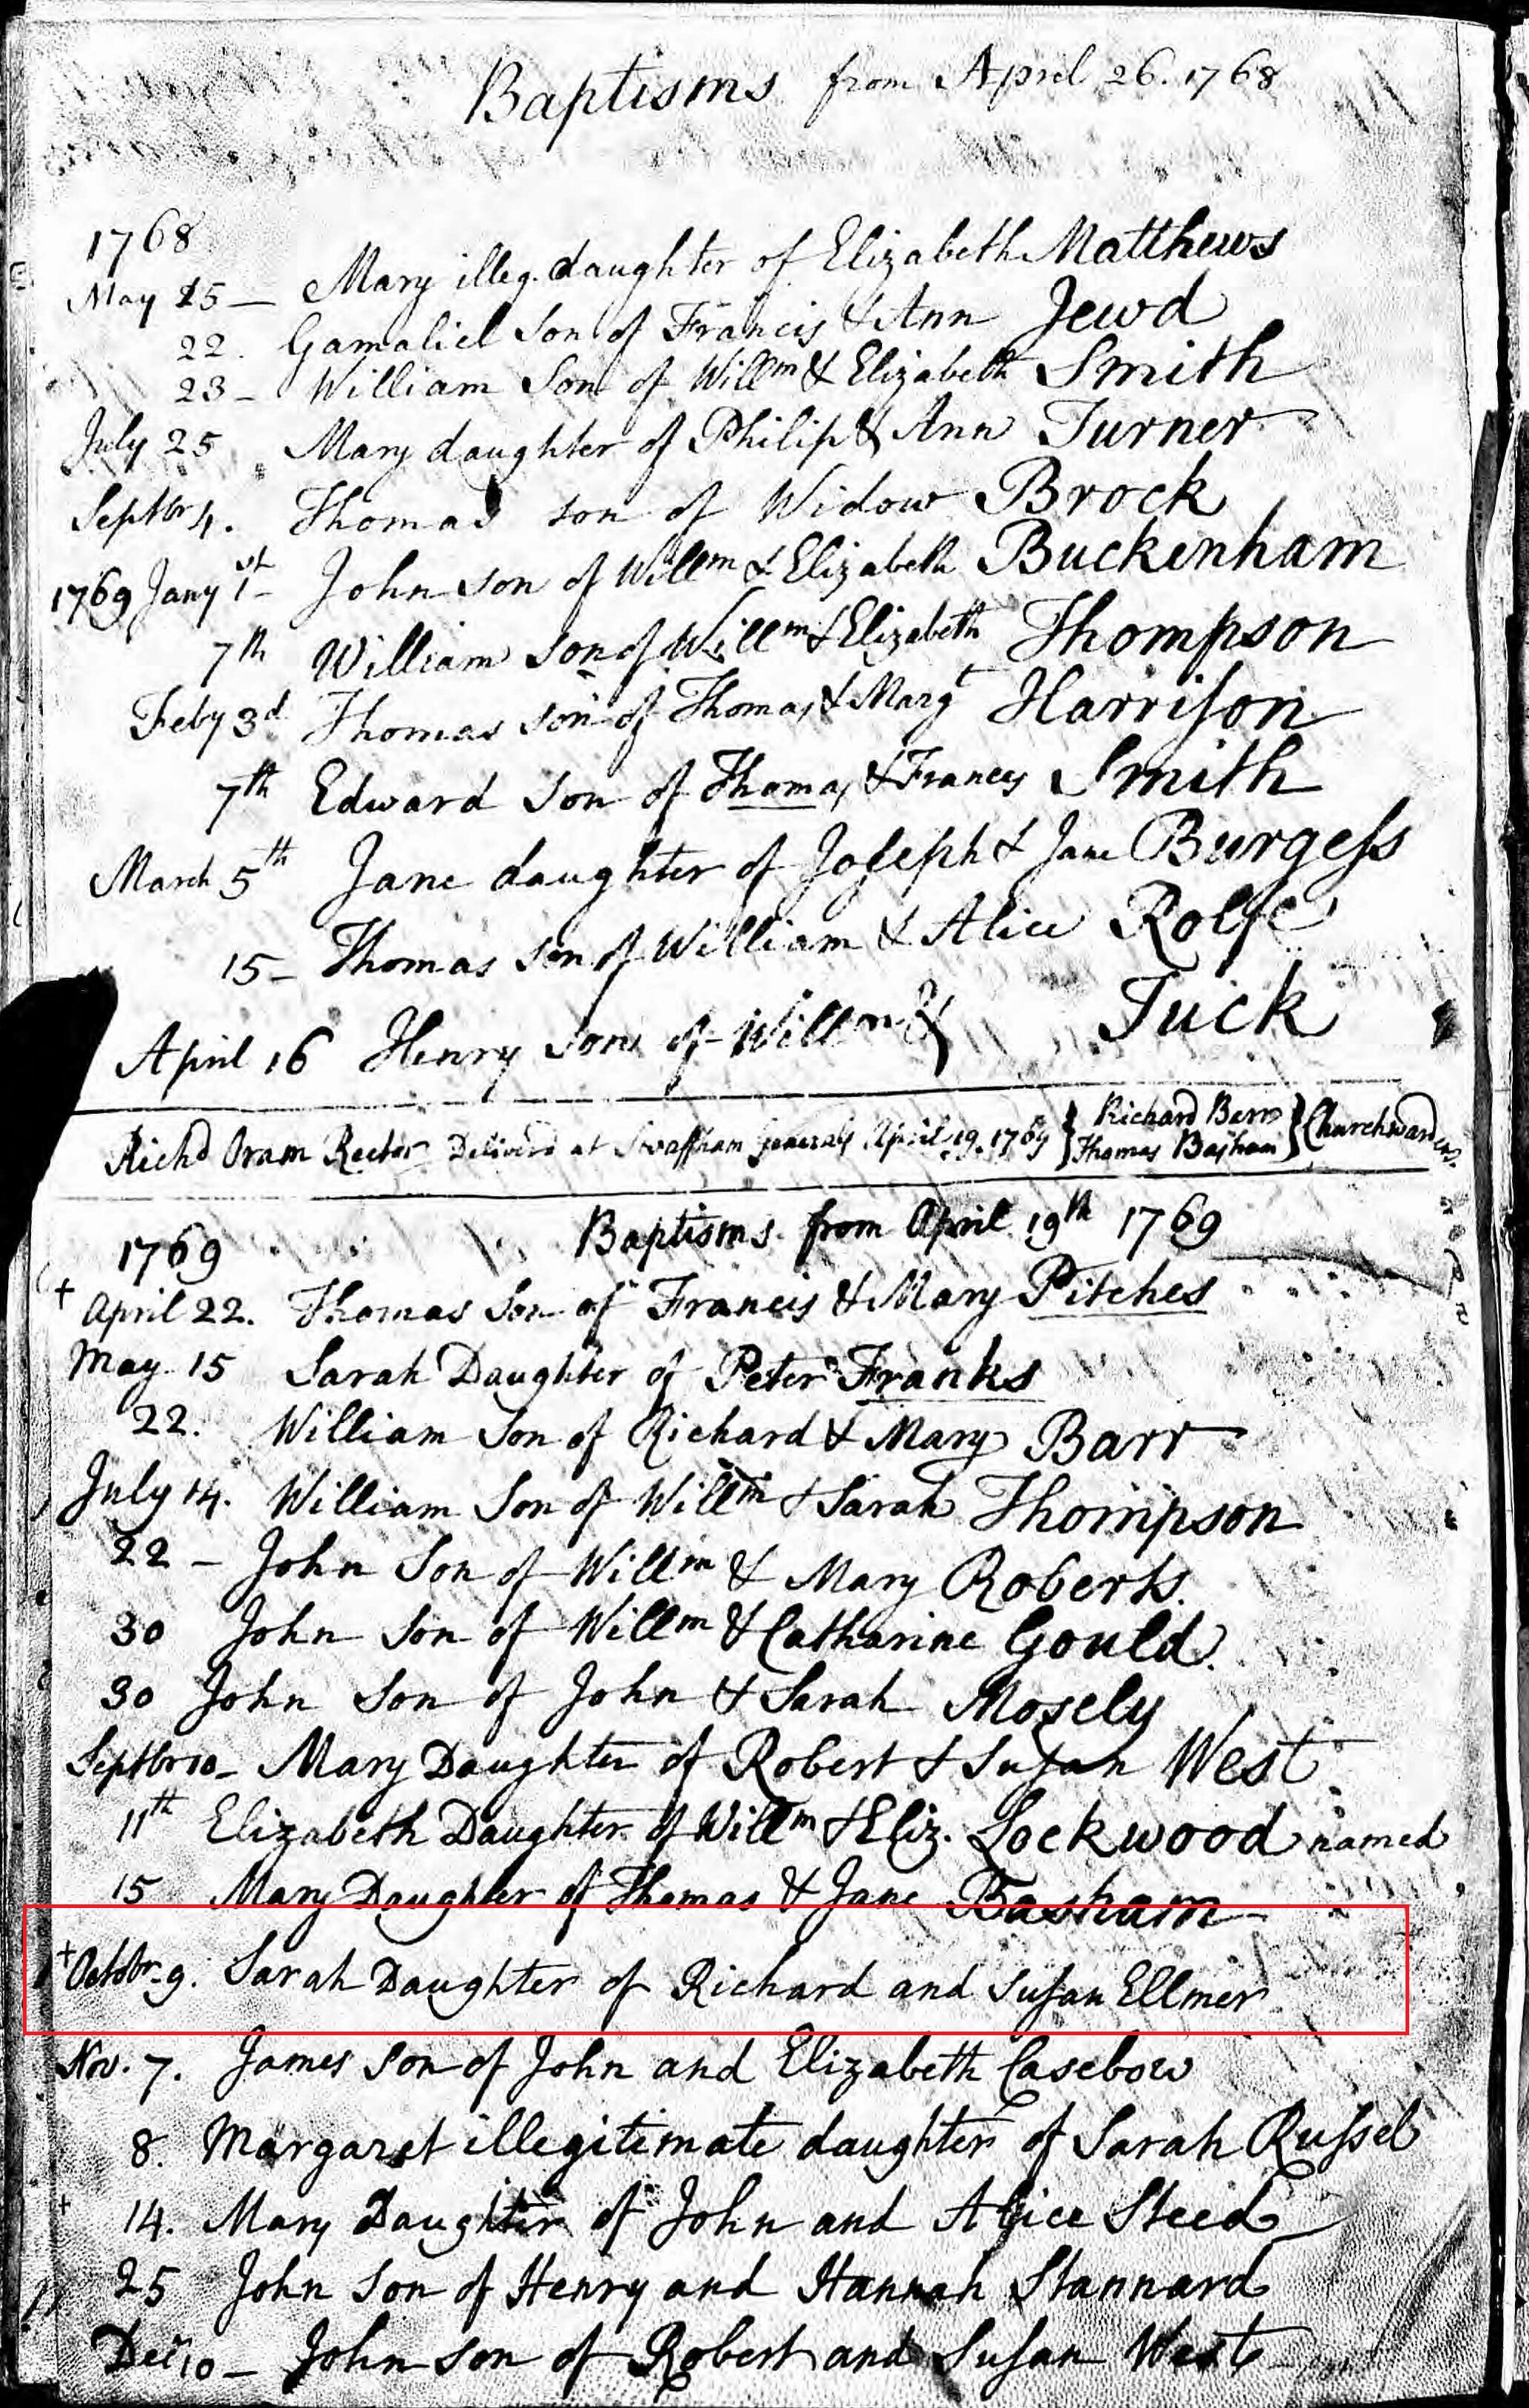 Baptisms from April 26. 1768
1768
May 15 — Mary illeg. daughter of Elizabeth Matthews
22. Gamaliel Son of Francis & Ann Jewd
23 – William Son of Willm & Elizabeth Smith
July 25 Mary daughter of Philip & Ann Turner
Septbr 4. Thomas son of Widow Brock
1769 Jany 1st – John son of Willm & Elizabeth Buckenham
7th William son of Willm & Elizabeth Thompson
Feby 3d Thomas son of Thomas & Margt Harrison
7th Edward Son of Thomas & Frances Smith
March 5th Jane daughter of Joseph & Jane Burgess
15 – Thomas son of William & Alice Rolfe
April 16 Henry Son of Willm & Tuck
Richd Oram Rector Deliverd at Swaffham Generals April 19. 1769 } Richard Barr } Churchwardens.
Thomas Basham
Baptisms from April 19th 1769
1769
+ April 22. Thomas Son of Francis & Mary Pitches
May 15 Sarah Daughter of Peter Franks
22. William Son of Richard & Mary Barr
July 14. William Son of Willm & Sarah Thompson
22 – John Son of Willm & Mary Roberts.
30 John Son of Willm & Catharine Gould.
30 John Son of John & Sarah Mosely
Septbr 10 – Mary Daughter of Robert & Susan West
11th Elizabeth Daughter of Willm & Eliz. Lockwood named
15 Mary Daughter of Thomas & Jane Basham
+ Octobr. 9. Sarah Daughter of Richard and Susan Ellmer
Nov. 7. James son of John and Elizabeth Casebow
8. Margaret illegitimate daughter of Sarah Russel
+ 14. Mary Daughter of John and Alice Steed
25 John Son of Henry and Hannah Stannard
Decr 10 – John son of Robert and Susan West